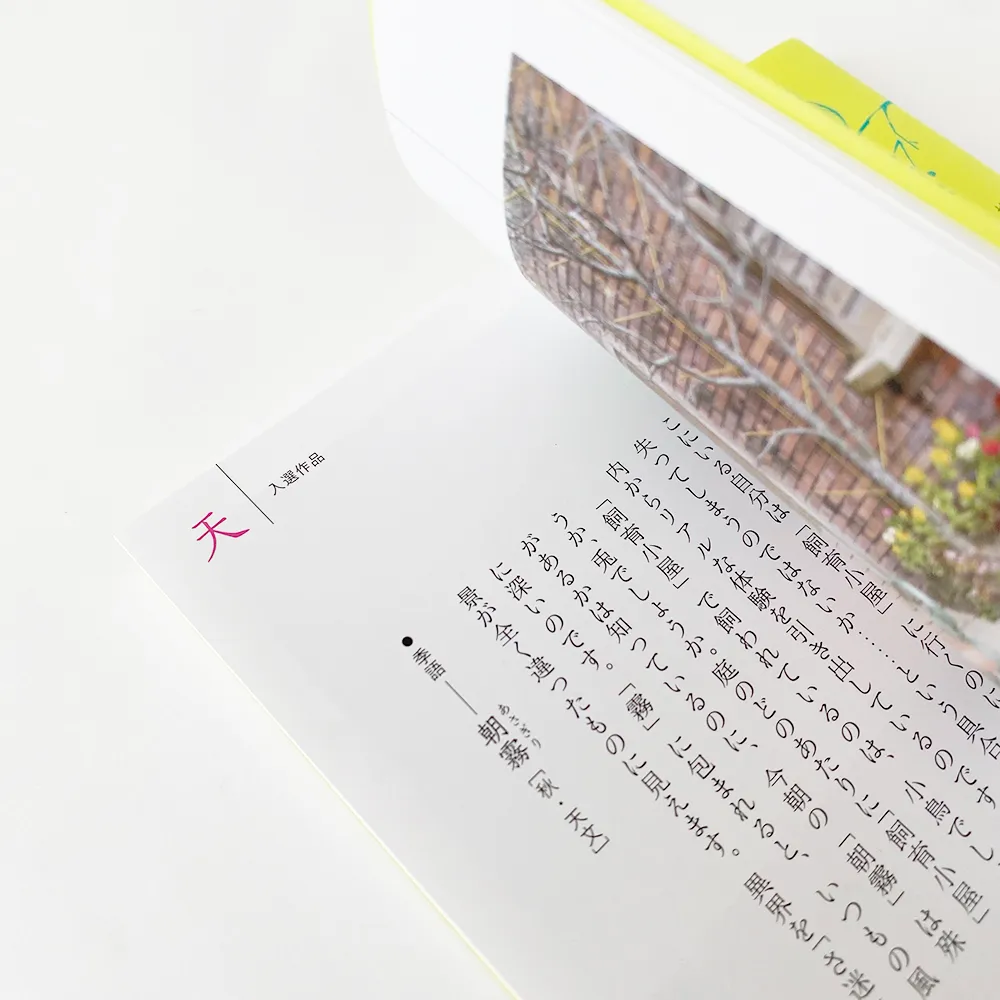 入選作品
天
こにいる自分は「飼育小屋」に行くのに
失ってしまうのではないか……という具合
内からリアルな体験を引き出しているのです
「飼育小屋」で飼われているのは、小鳥でし
うか、兎でしょうか。庭のどのあたりに「飼育小屋」
があるかは知っているのに、今朝の「朝霧」は殊
に深いのです。「霧」に包まれると、いつもの風
景が全く違ったものに見えます。異界を「さ迷
●季語――朝霧［秋・天文］
あさぎり